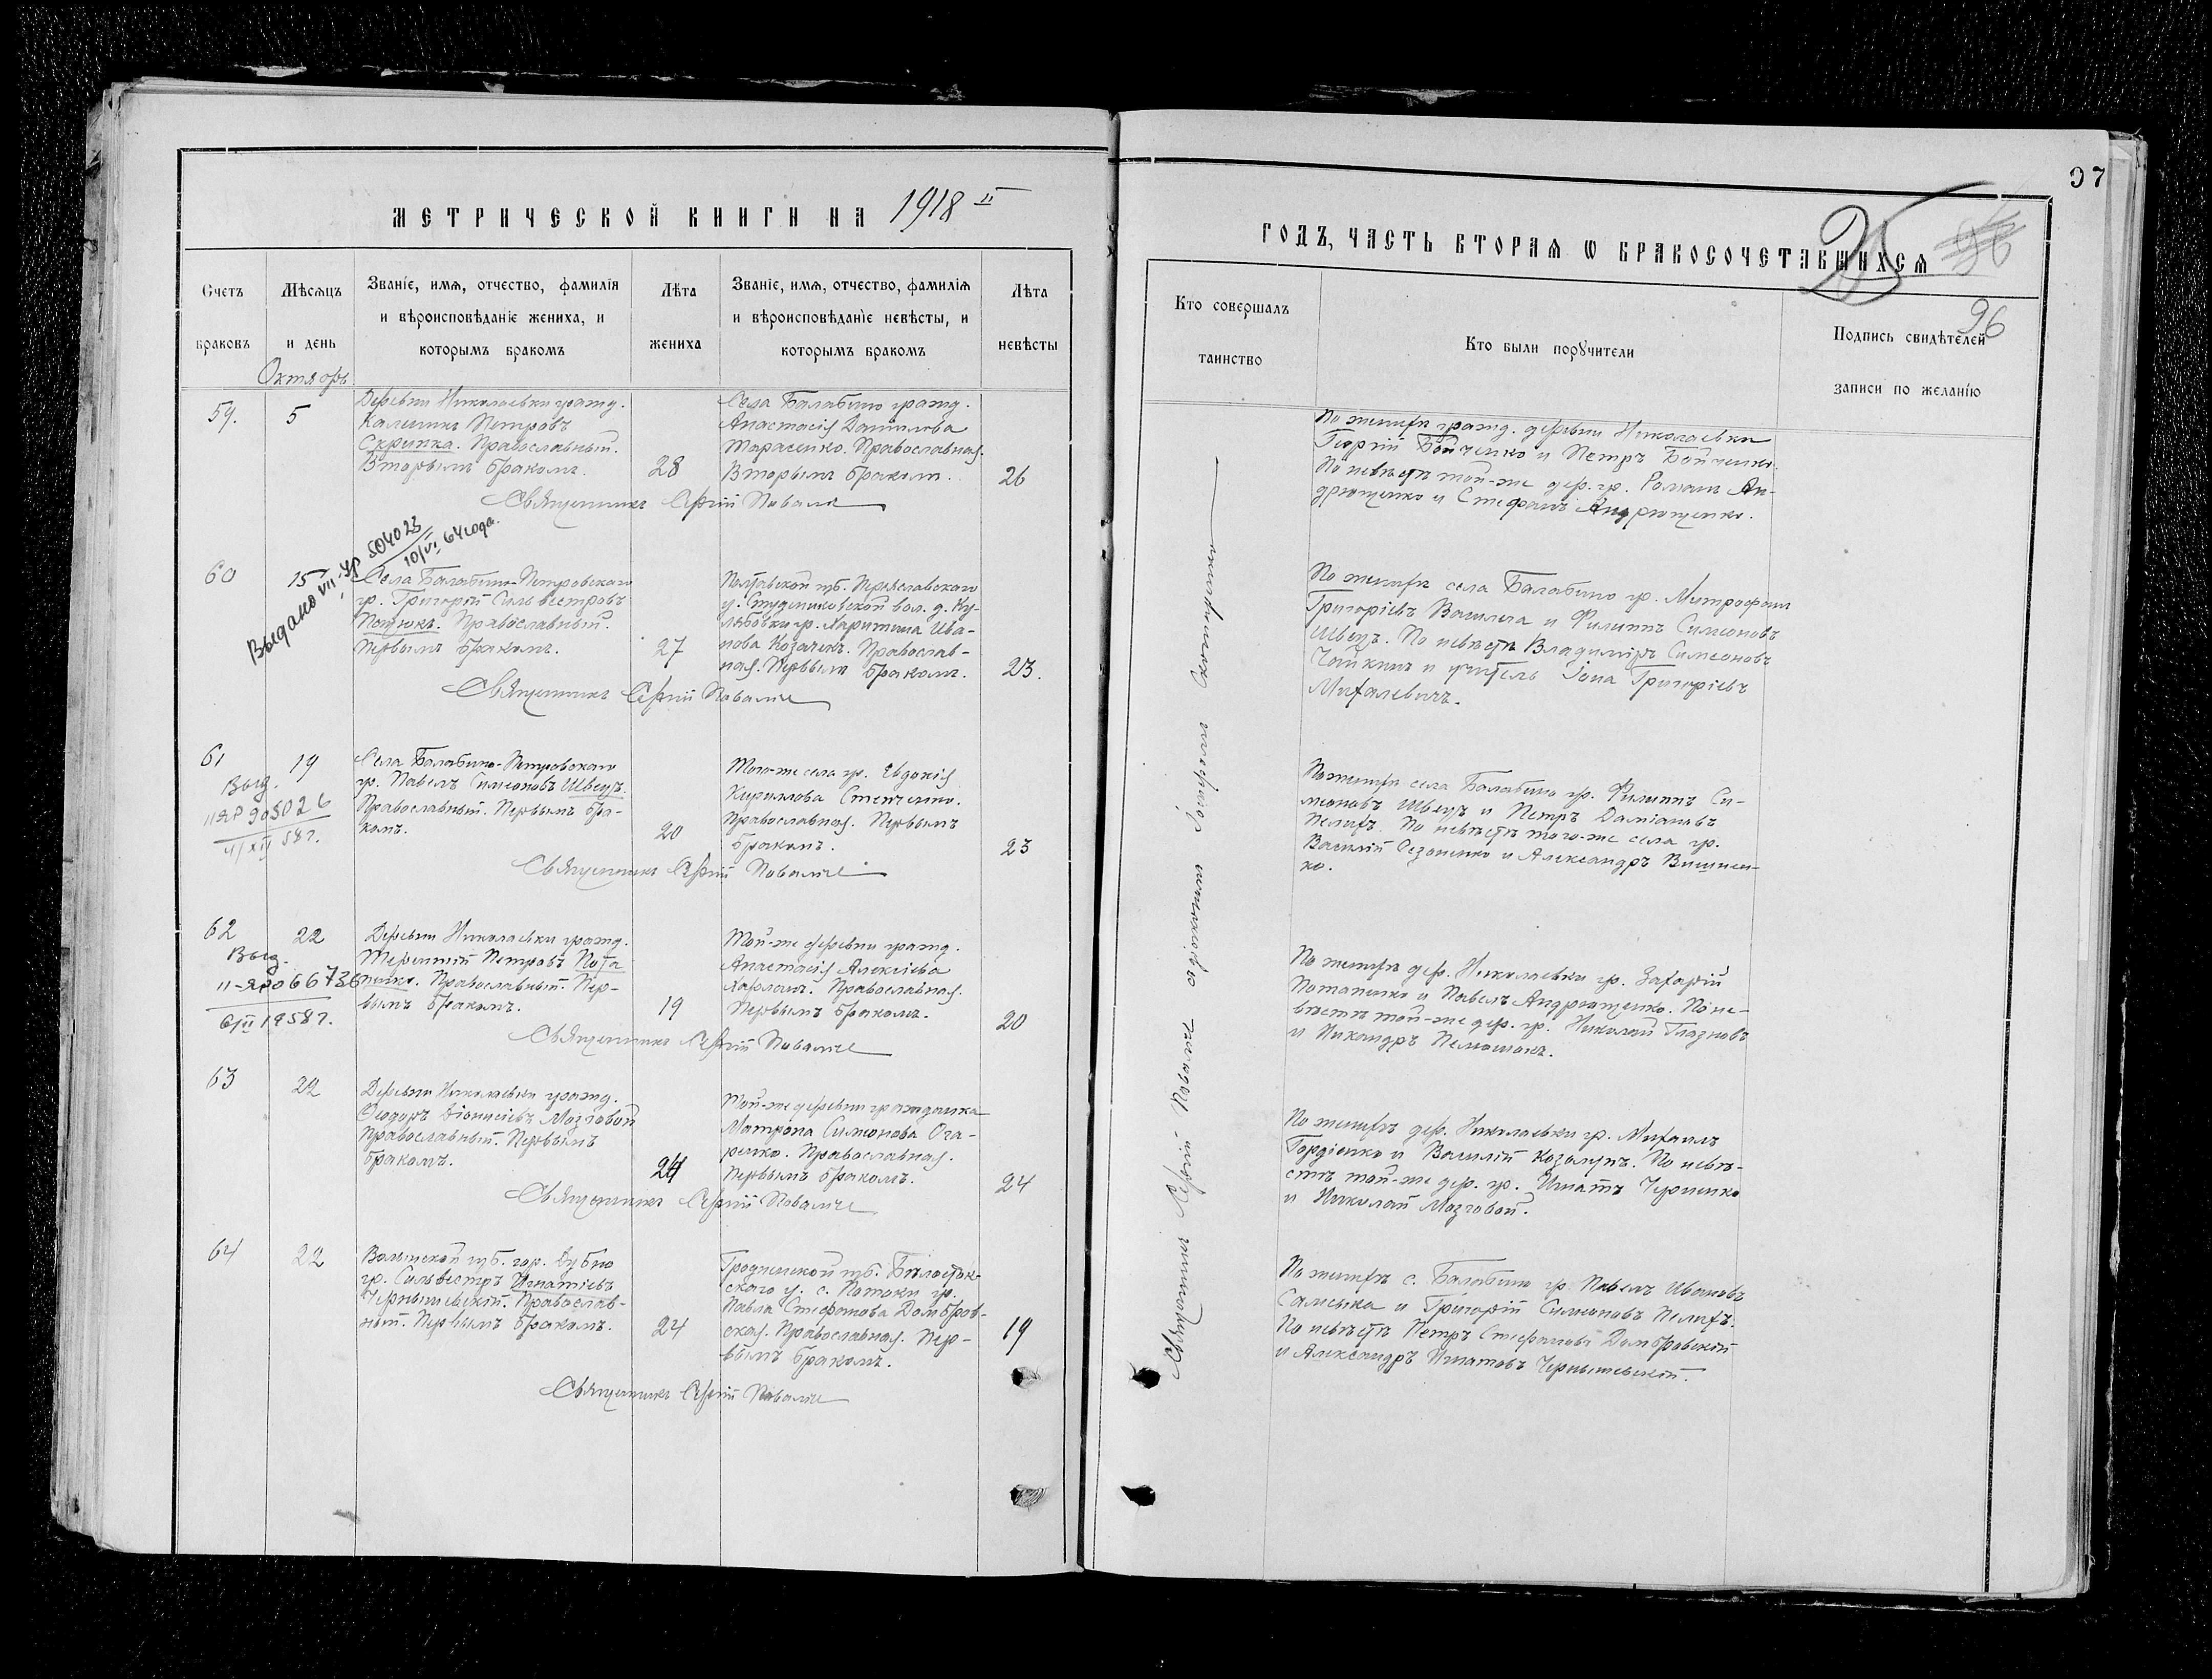 97
МЕТРИЧЕСКОЙ КНИГИ НА 1918 г.
Счетъ браковъ
Мѣсяцъ и день
Званіе, имя, отчество, фамилія
и вѣроисповѣданіе жениха, и
которымъ бракомъ
Лѣта жениха
Званіе, имя, отчество, фамилія
и вѣроисповѣданіе невѣсты, и
которымъ бракомъ
Лѣта невѣсты
Октябрь
59. 5
Деревни Николаевки гражд.
Калинникъ Петровъ
Скрипка. Православный.
Вторымъ бракомъ.
28
Села Балабино гражд.
Анастасія Даніилова
Тарасенко. Православная.
Вторымъ бракомъ.
26
Священникъ Сергій
Выдано VII-УР 504023
10/VI 64 года.
60 15
Села Балабино-Петровскаго
гр. Григорій Сильвестровъ
Православный.
Первымъ бракомъ.
27
Полтавской губ. Переяславскаго
у. Студениковской вол. д. Ку-
гр. Харитина Ива-
нова Козаченк. Православ-
ная. Первымъ бракомъ.
23.
Священникъ Сергій
61 19
Выд.
II ЯР 905026
4/XII 58 г.
Села Балабино-Петровскаго
гр. Павелъ Симеоновъ Швецъ.
Православный. Первымъ бра-
комъ.
20
Того-же села гр. Евдокія
Кириллова Степченко.
Православная. Первымъ
бракомъ.
23
Священникъ Сергій
62 22
Выд.
II-ЯР 066736
6/II 1958 г.
Деревни Николаевки гражд.
Терентій Петровъ Пота-
пенко. Православный. Пер-
вымъ бракомъ.
19
Той-же деревни гражд.
Анастасія Алексіева
Харлам. Православная.
Первымъ бракомъ.
20
Священникъ Сергій
63 22
Деревни Николаевки гражд.
Ѳеодоръ Діонисіевъ Мозговой
Православный. Первымъ
бракомъ.
24
Той-же деревни гражданка
Матрона Симеонова Ога-
ренко. Православная.
Первымъ бракомъ.
24
Священникъ Сергій
64 22
Волынской губ. гор. Дубно
гр. Сильвестръ Игнатіевъ
Чернышевскій. Православ-
ный. Первымъ бракомъ.
24
Гродненской губ. Бѣлосток-
скаго у. с. Потоки гр.
Павла Стефанова Домбров-
ская. Православная. Пер-
вымъ бракомъ.
19
Священникъ Сергій
ГОДЪ, ЧАСТЬ ВТОРАЯ Ѡ БРАКОСОЧЕТАВШИХСЯ
25
96
96
Кто совершалъ таинство
Кто были поручители
Подпись свидѣтелей
записи по желанію
Священникъ Сергій
По женихѣ гражд. деревни Николаевки
Георгій Бойченко и Петръ Бойченко.
По невѣстѣ той-же дер. гр. Романъ Ан-
дрющенко и Стефанъ Андрющенко.
По женихѣ села Балабино гр. Митрофанъ
Григоріевъ Василега и Филиппъ Симеоновъ
Швецъ. По невѣстѣ Владиміръ Симеоновъ
Чайкинъ и учитель Іона Григоріевъ
Михалевичъ.
По женихѣ села Балабино гр. Филиппъ Си-
меоновъ Швецъ и Петръ Даміановъ
Пелихъ. По невѣстѣ того-же села гр.
Василій и Александръ Вишнен-
ко.
По женихѣ дер. Николаевки гр. Захарій
Потапенко и Павелъ Андрющенко. По не-
вѣстѣ той-же дер. гр. Николай Глазновъ
и Никандръ
По женихѣ дер. Николаевки гр. Михаилъ
Гордіенко и Василій Козолупъ. По невѣ-
стѣ той-же дер. гр. Игнатъ Черненко
и Николай Мозговой.
По женихѣ с. Балабино гр. Павелъ Ивановъ
и Григорій Симеоновъ Пелихъ.
По невѣстѣ Петръ Стефановъ Домбровскій
и Александръ Игнатовъ Чернышевскій.